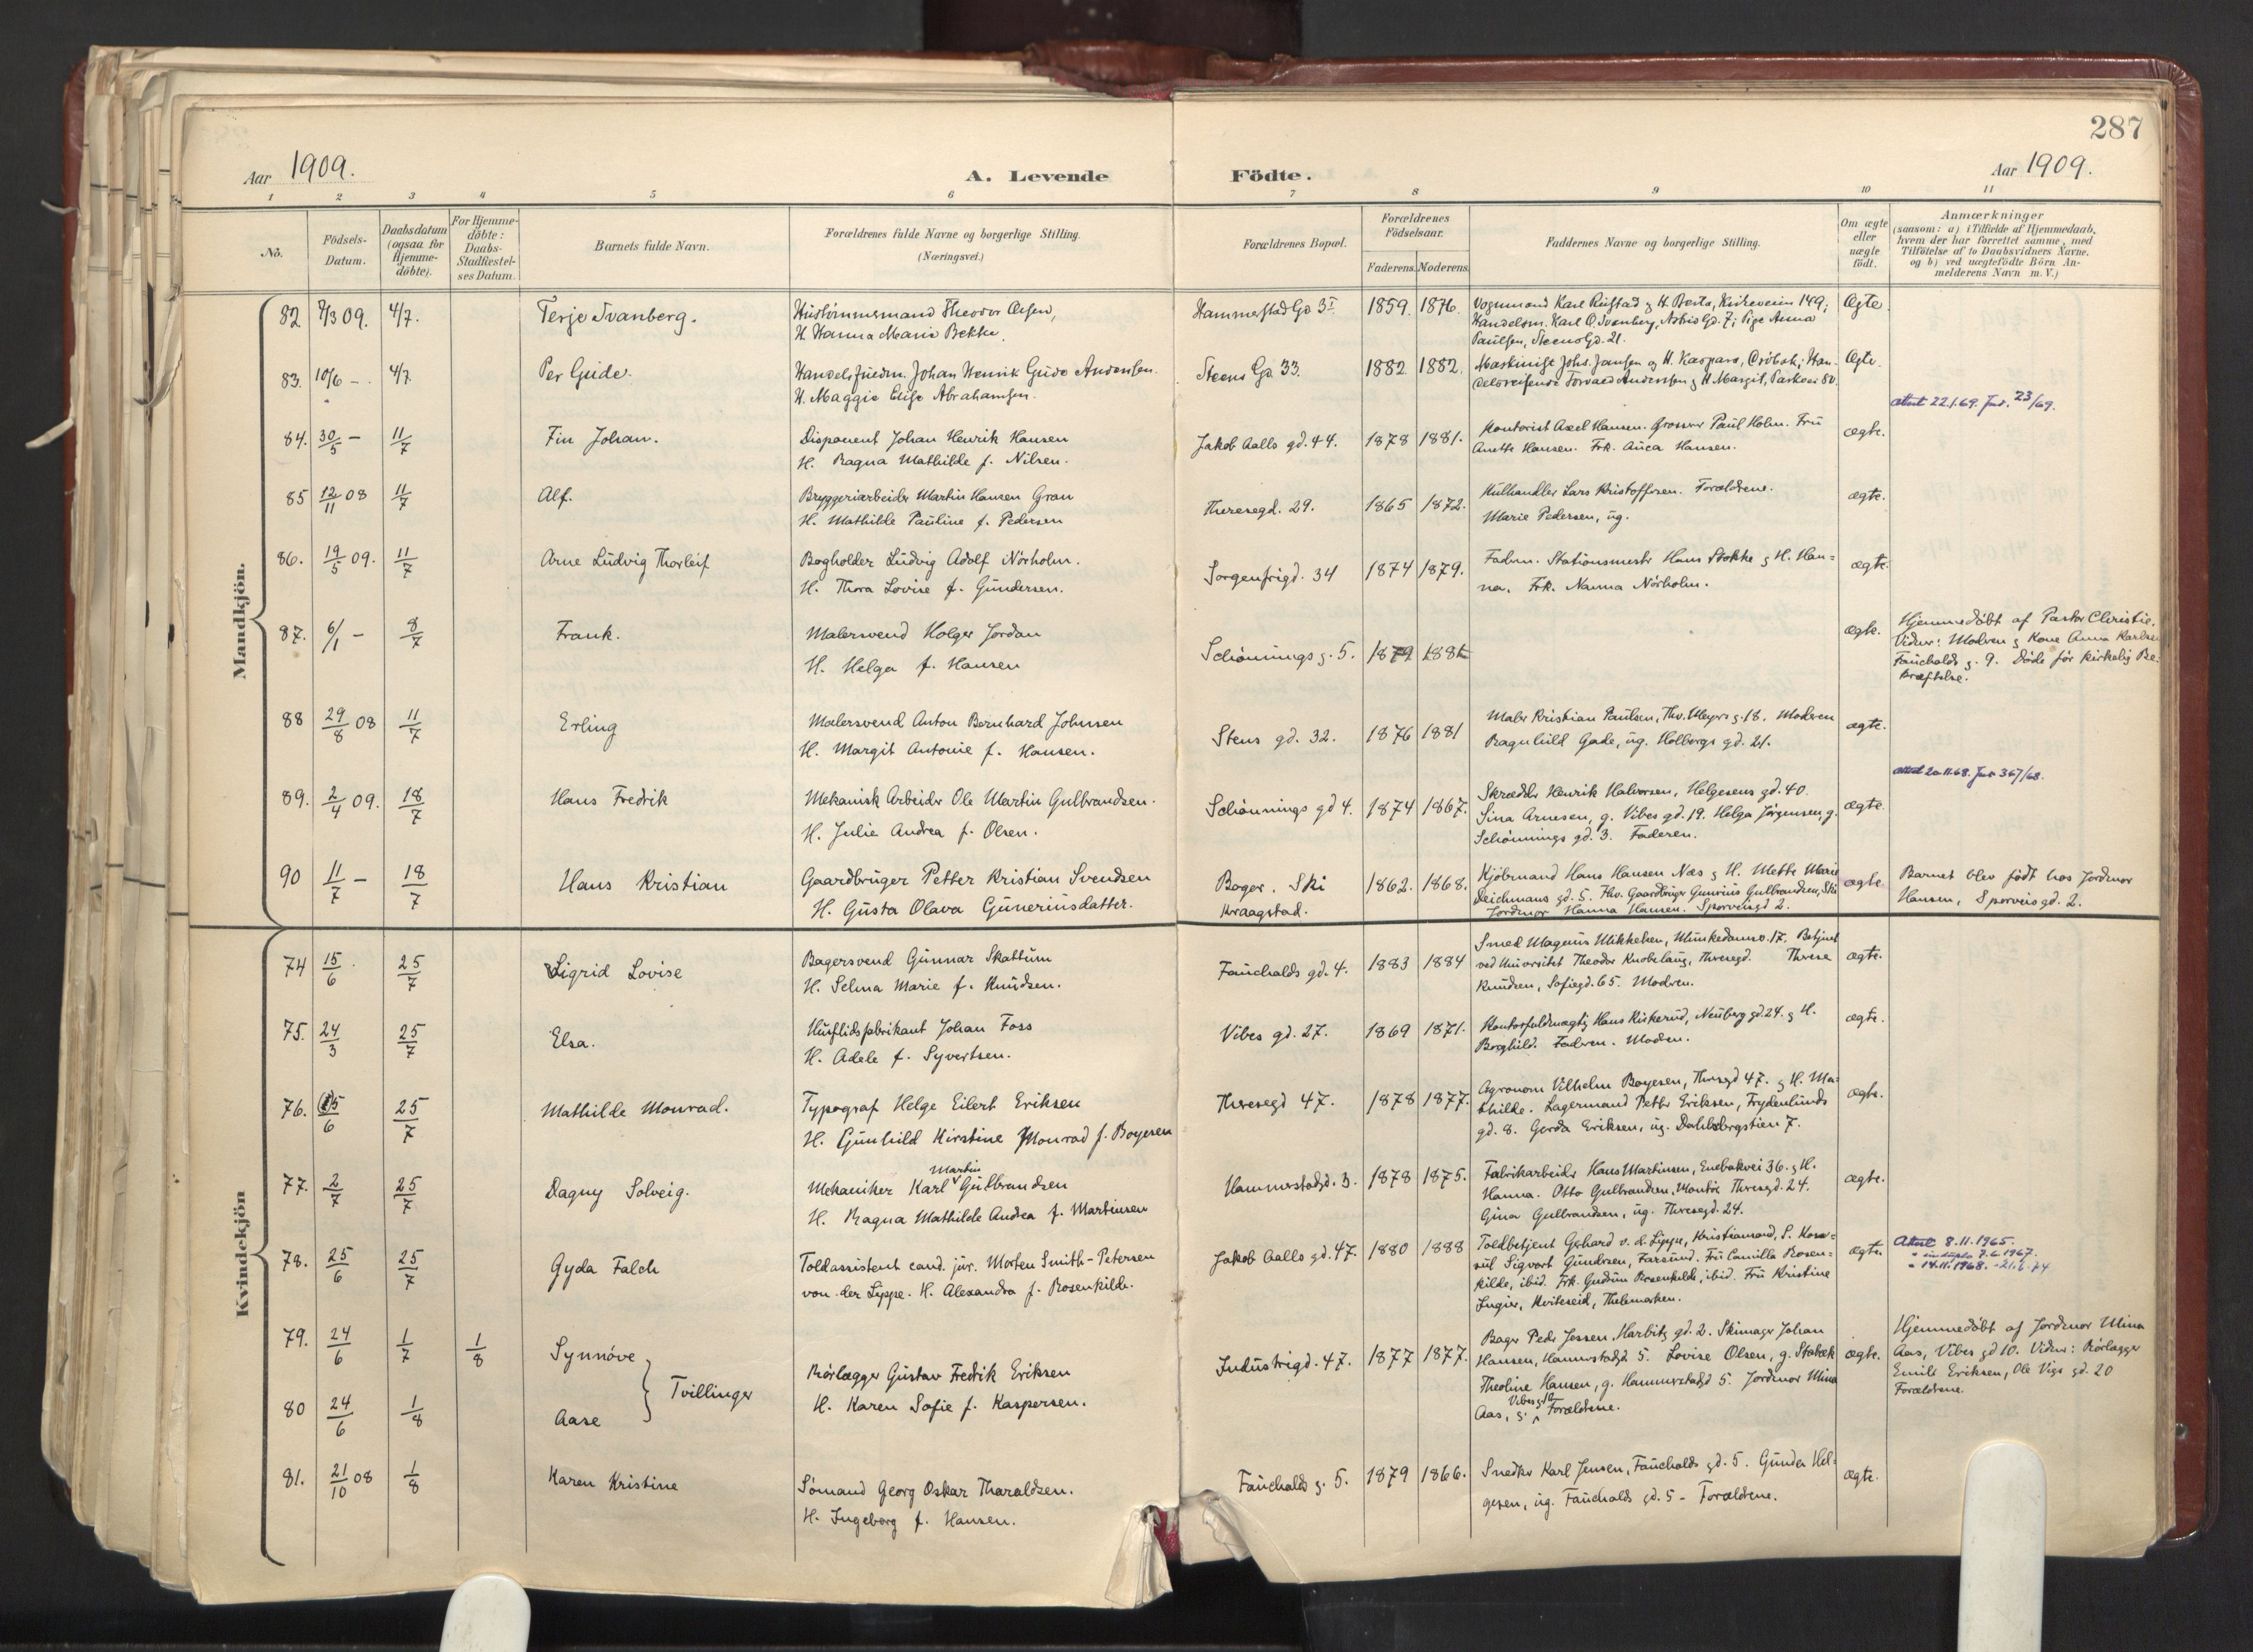 287
Aar 1909.
A. Levende
Födte.
Aar 1909.
1 2 3 4 5 6 7 8 9 10 11
No.
Födsels-
Datum.
Daabsdatum
(ogsaa for
Hjemme-
döbte).
For Hjemme-
döbte:
Daabs-
Stadfæstel-
ses Datum.
Barnets fulde Navn.
Forældrenes fulde Navne og borgerlige Stilling.
(Næringsvei.)
Forældrenes Bopæl.
Forældrenes
Födselsaar.
Faderens. Moderens.
Faddernes Navne og borgerlige Stilling.
Om ægte
eller
uægte
födt.
Anmærkninger
(saasom: a) i Tilfælde af Hjemmedaab,
hvem der har forrettet samme, med
Tilföielse af to Daabsvidners Navne.
og b) ved uægtefödte Börn An-
melderens Navn m. V.)
Mandkjön.
82 7/3 09. 4/7. Terje Svanberg.
Theodor Olsen,
H. Hanna Marie Bekke.
Hammerstad Gd 3I 1859. 1876.
Vognmand Karl Rustad & H. Berta, Kirkeveien 149;
Handelsm. Karl O. Svanberg, Gd. 7; Pige Anna
Paulsen, Steens Gd. 21.
Ægte.
83. 10/6 - 4/7 Per Gude.
Johan Henrik Gude Andersen.
H. Maggie Elise Abrahamsen.
Steens Gd. 33. 1882. 1882.
Maskinist Johs. Jansen og H. Kaspara, Dröbak; Han-
delsreisende Torvald Anderssen & H. Margit, Parkvei 80.
Ægte.
Attest 22.1.69. Jnr. 23/69.
84. 30/5 - 11/7 Fin Johan.
Disponent Johan Henrik Hansen
H. Ragna Mathilde f. Nilsen.
Jakob Aalls gd. 44. 1878 1881.
Kontorist Axel Hansen. Grosserer Paul Holm. Fru
Anette Hansen. Frk. Hansen.
ægte.
85 12/11 08 11/7 Alf.
Bryggeriarbeider Martin Hansen Gran
H. Mathilde Pauline f. Pedersen
Theresegd. 29. 1865 1872.
Kulhandler Lars Kristoffersen. Forældrene.
Marie Pedersen, ug.
ægte.
86. 19/5 09. 11/7 Arne Ludvig Thorleif
Bogholder Ludvig Adolf Nörholm.
H. Thora Lovise f. Gundersen.
Sorgenfrigd. 34 1874 1879.
Faderen. Stationsmester Hans Stokke & H. Han=
na. Frk. Nanna Nörholm.
ægte.
87. 6/1 - 8/7 Frank.
Malersvend Holger Jordan
H. Helga f. Hansen
Schönnings g. 5. 1879 1881
ægte.
Hjemmedöbt af Pastor Christie.
Vidner: Moderen & Kone Anna Karlsen
Fauchalds g. 9. Döde för kirkelig Be=
kræftelse.
88 29/8 08 11/7 Erling
Malersvend Anton Bernhard Johnsen
H. Margit Antonie f. Hansen.
Stens gd. 32. 1876 1881
Maler Kristian Paulsen, Thv. Meyers g. 18. Moderen
Ragnhild Gade, ug. Holbergs gd. 21.
ægte.
Attest 20.11.68. Jnr 367/68.
89. 2/4 09. 18/7 Hans Fredrik
Mekanisk Arbeider Ole Martin Gulbrandsen.
H. Julie Andrea f. Olsen.
Schönnings gd 4. 1874 1867.
Skrædder Henrik Halvorsen, Helgesens gd. 40.
Sina Arnesen, g. Vibes gd. 19. Helga Jörgensen, g.
Schönnings gd. 3. Faderen.
ægte.
90 11/7 - 18/7 Hans Kristian
Gaardbruger Petter Kristian Svendsen
H. Gusta Olava Gunerinsdatter.
Boger. Ski
Kraagstad.
1862. 1868.
Kjöbmand Hans Hansen Næs & H. Mette Marie
Deichmans gd. 5. Fhv. Gaardbruger Gunerius Gulbrandsen, Ski
Jordmor Hanna Hansen. Sporveisgd 2.
ægte.
Barnet blev födt hos Jordmor
Hansen, Sporveisgd. 2.
Kvindekjön
74 15/6 . 25/7 Sigrid Lovise
Bagersvend Gunnar Skattum
H. Selma Marie f. Knudsen.
Fauchalds gd. 4. 1883 1884
Smed Magnus Mikkelsen, Munkedamsv. 17. Betjent
ved Universitet Theodor Knobelaug, Theresegd. Therese
Knudsen, Sofiegd. 65. Moderen.
ægte.
75. 24/3 25/7 Elsa.
Husflidsfabrikant Johan Foss
H. Adele f. Syvertsen.
Vibes gd. 27. 1869 1871.
Kontorfuldmægtig Hans Kirkerud, Neuberg gd. 24. & H.
Borghild. Faderen. Moderen.
ægte.
76. 15/6 25/7 Mathilde Monrad.
Typograf Helge Eilert Eriksen
H. Gunhild Kirstine Monrad f. Boyesen
Theresegd 47. 1878 1877.
Agronom Vilhelm Boyesen, Theresegd 47. & H. Ma=
thilde. Lagermand Petter Eriksen, Frydenlunds
gd. 8. Gerda Eriksen, ug. Dahlsbergstien 7.
ægte.
77. 2/7 25/7 Dagny Solveig.
Martin
Mekaniker Karl Gulbrandsen
H. Ragna Mathilde Andrea f. Martinsen
Hammerstadgd. 3. 1878 1875.
Fabrikarbeider Hans Martinsen, Enebakvei 36. & H.
Hanna. Otto Gulbrandsen, Montör Theresegd. 24.
Gina Gulbrandsen, ug. Theresegd. 24.
ægte.
78. 25/6 25/7 Gyda Falch
Toldassistent cand. jur. Morten Smith-Petersen
von der Lippe. H. Alexandra f. Rosenkilde.
Jakob Aalls gd. 47. 1880 1888
Toldbetjent Gerhard v. d. Lippe, Kristiansand, S. Kon=
sul Sigvart Gundersen, Farsund. Fru Camilla Rosen=
kilde, ibid. Frk. Gudrun Rosenkilde, ibid. Fru Kristine
Ingier, Kviteseid, Thelemarken.
ægte.
Attest 8.11.1965.
" in duplo 7.6.1967.
" 14.11.1968. - 21.6.74
79. 24/6 1/7 1/8 Synnöve
80 24/6 1/8 Aase
Tvillinger
Rörlægger Gustav Fredrik Eriksen
H. Karen Sofie f. Kaspersen.
Industrigd. 47. 1877 1877.
Bager Peder Jessen, Harbitz gd. 2. Skomager Johan
Hansen, Hammerstadgd 5. Lovise Olsen, g. Stabæk
Theoline Hansen, g. Hammerstadgd 5. Jordmor Mina
Vibes gd 10
Aas, g. Forældrene.
ægte.
Hjemmedöbt af Jordmor Mina
Aas, Vibes gd 10. Vidner: Rörlægger
Emil Eriksen, Ole Vigs gd. 20
Forældrene.
81. 21/10 08 1/8 Karen Kristine
Sömand Georg Oskar Tharaldsen.
H. Ingeborg f. Hansen.
Fauchalds g. 5. 1879 1866.
Snedker Karl Jensen, Fauchalds gd. 5. Gunda Hel=
gesen, ug. Fauchalds gd. 5 - Forældrene.
ægte.